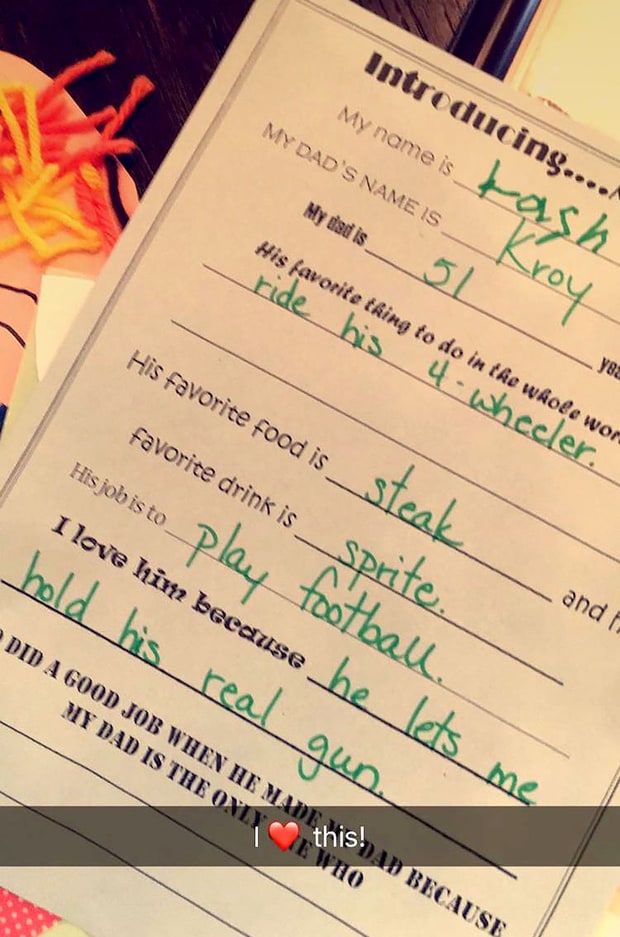 Introducing....
My name is Kash
MY DAD'S NAME IS Kroy
My dad is 51
His favorite thing to do in the whole
ride his 4-wheeler.
His favorite food is steak and
favorite drink is sprite.
His job is to play football.
I love him because he lets me
hold his real gun.
DID A GOOD JOB WHEN HE MADE DAD BECAUSE
MY DAD IS THE ONLY WHO
I ❤️ this!